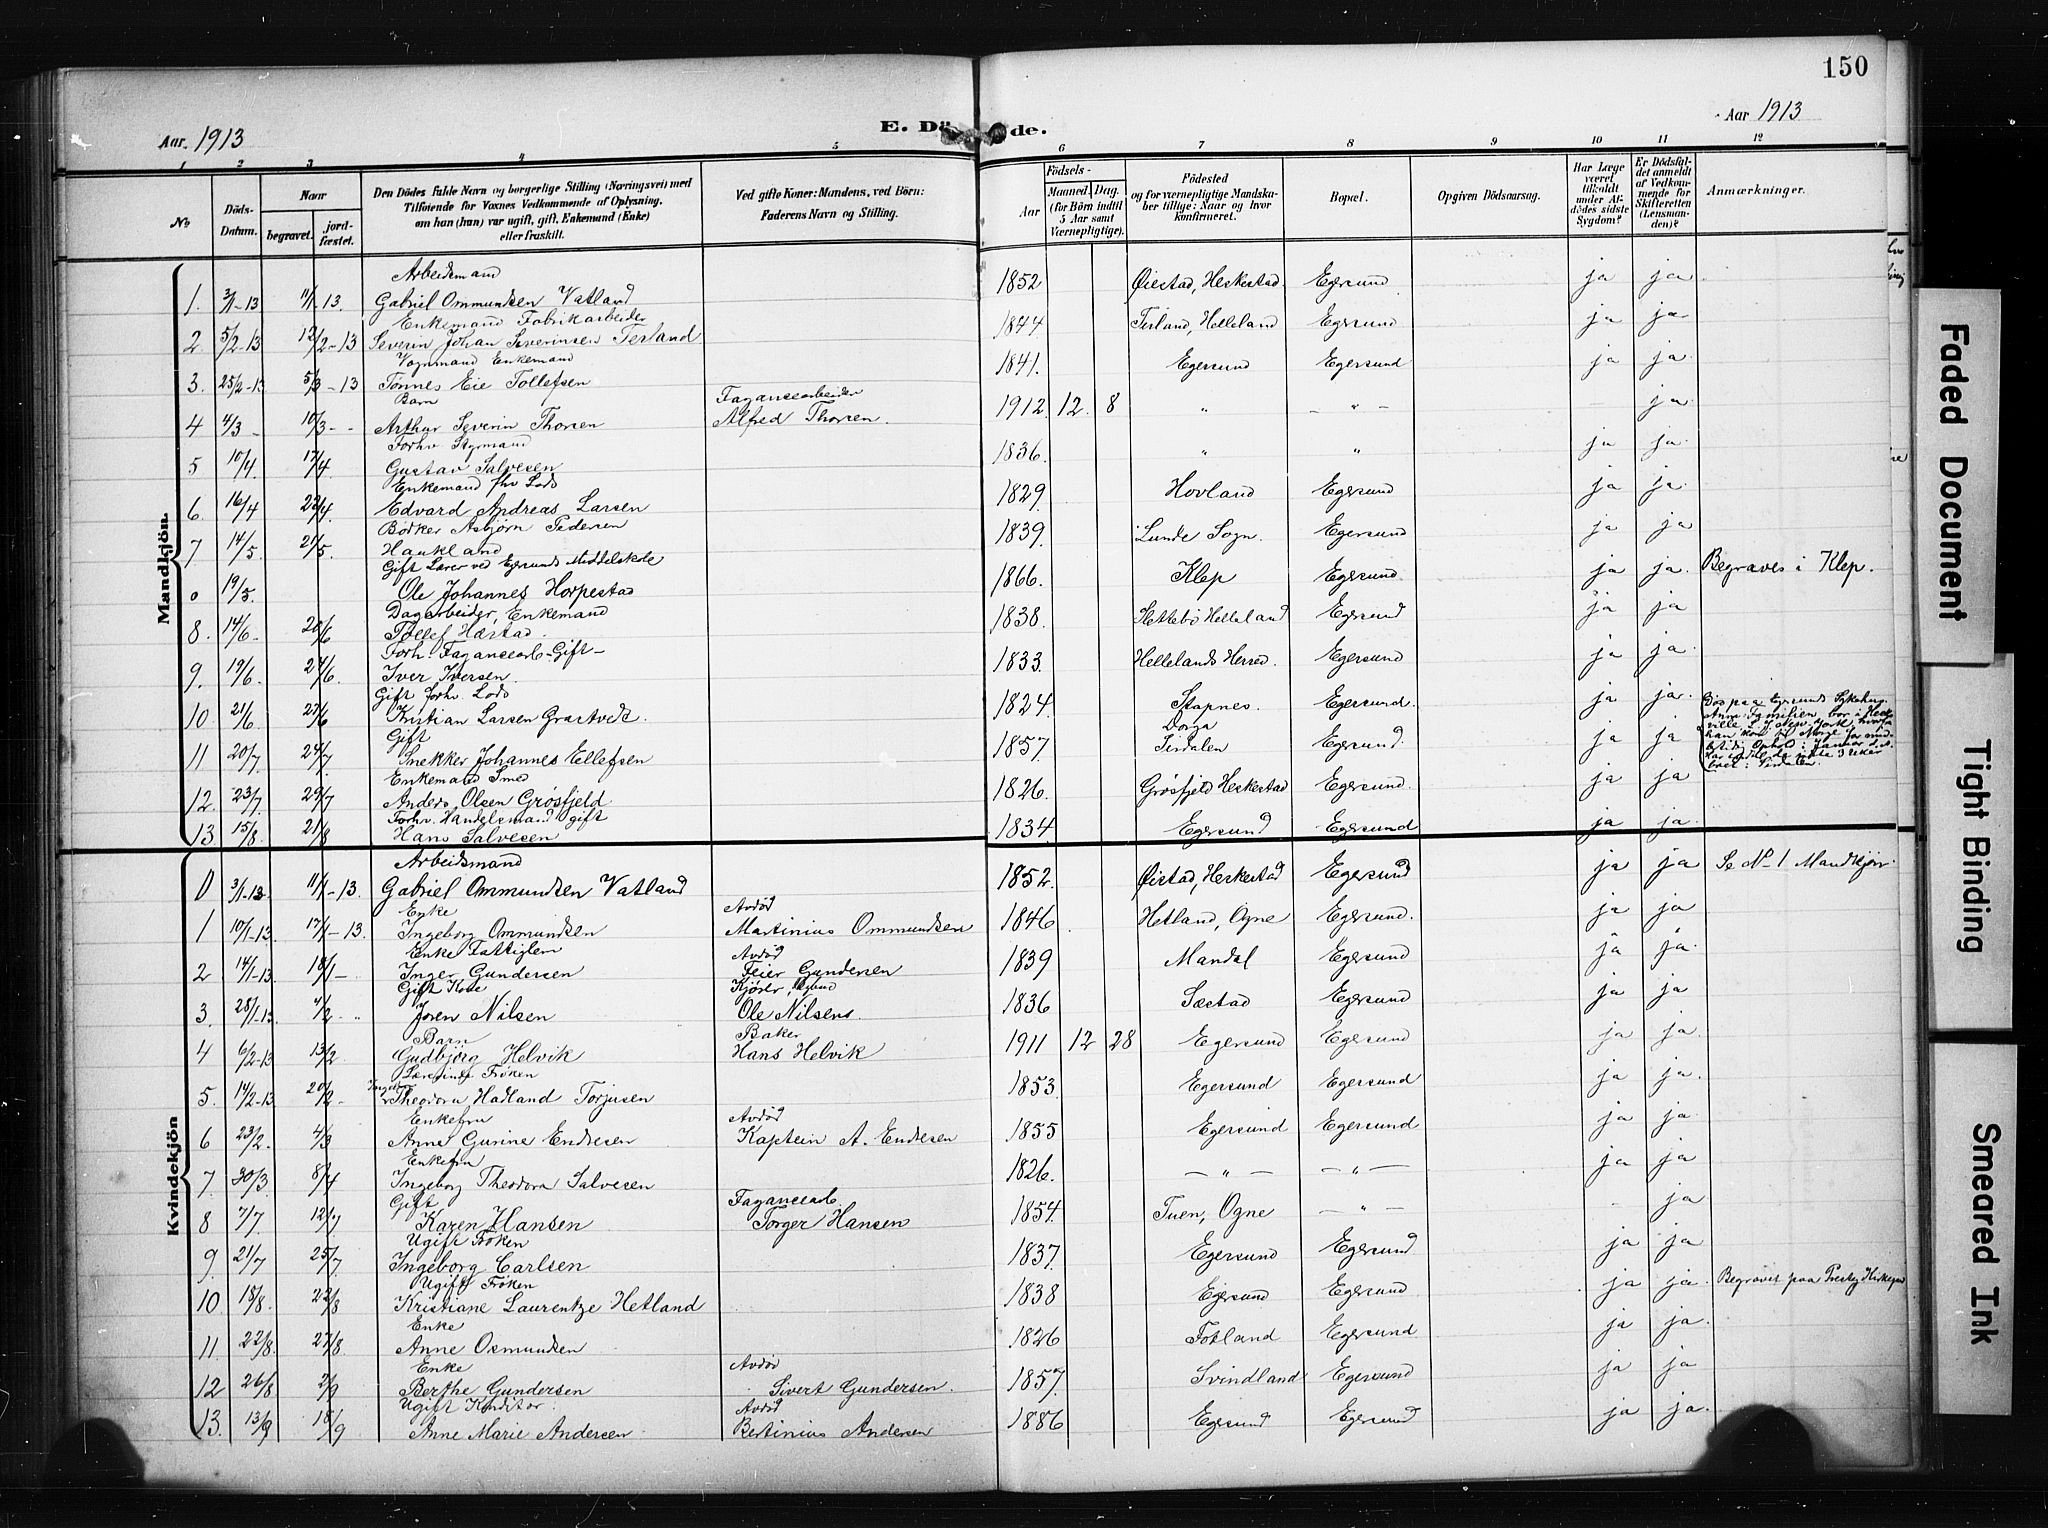 150
Aar 1913
E. Dö de.
Aar 1913
1 2 3 4 5 6 7 8 9 10 11 12
No
Döds-Datum.
Naar
begravet.
jord-fæstet.
Den Dödes fulde Navn og borgerlige Stilling (Næringsvei) med
Tilföiende for Voxnes Vedkommende af Oplysning,
om han (hun) var ugift, gift, Enkemand (Enke)
eller fraskilt.
Ved gifte Koner: Mandens, ved Börn:
Faderens Navn og Stilling.
Födsels-
Aar
Maaned. Dag.
(for Börn indtil
5 Aar samt
Værnepligtige).
Födested
og for værnepligtige Mandska-
ber tillige: Naar og hvor
konfirmeret.
Bopæl.
Opgiven Dödsaarsag.
Har Læge
været
tilkaldt
under Af-
dödes sidste
Sygdom?
Er Dödsfal-
det anmeldt
af Vedkom-
mende for
Skifteretten
(Lensman-
den)?
Anmærkninger.
Mandkjön.
Arbeidsmand
1. 3/1-13 11/1-13 Gabriel Ommundsen Vatland 1852 Øiestad, Heskestad Egersund ja ja
Enkemand Fabrikarbeider
2 5/2-13 12/2-13 Severin Johan Severinsen Tesland 1844 Tesland, Helleland Egersund ja ja
Vognmand Enkemand
3. 25/2-13 5/3-13 Tønnes Eie Tollefsen 1841. Egersund Egersund ja ja
Barn Fagancearbeider
4 4/3 - 10/3 - - Arthur Severin Thorsen Alfred Thorsen. 1912 12 8 " - " - - ja
Forhv Styrmand
5 10/4 17/4 Gustav Salvesen 1836. " " ja ja
Enkemand fhv Lods
6. 16/4 22/4. Edvard Andreas Larsen 1829. Hovland Egersund ja ja
Bødker Asbjørn Pedersen
7 14/5 21/5. Haukland 1839. Lunde Sogn. Egersund ja ja
Gift Lærer ved Egersunds Middelskole
0 19/5. Ole Johannes Horpestad 1866. Klep Egersund. ja ja. Begraves i Klep.
Dagarbeider, Enkemand
8. 14/6- 20/6 Tollef Hæstad. 1838. Hettebø Helleland Egersund ja ja
Forh. Fagancearb - Gift -
9. 19/6 24/6. Iver Iversen. 1833. Hellelands Herred. Egersund ja ja
Gift forhv. Lods
10. 21/6 27/6 Kristian Larsen Grastveit. 1824. Stapnes. Egersund. ja ja.
Gift
11 20/7 24/7 Snekker Johannes Ellefsen 1857. Dorga Sirdalen Egersund. ja ja Død paa Egersunds Sykehus.
Enkemand Smed
12. 23/7 29/7 Anders Olsen Grøsfjeld 1826. Grøsfjeld Heskestad Egersund. ja ja
Forhv. Handelsmand gift
13. 15/8. 21/8 Hans Salvesen 1834 Egersund Egersund ja ja.
Kvindekjön
Arbeidsmand
0 3/1-13. 11/1-13. Gabriel Ommundsen Vatland 1852. Øistad, Heskestad Egersund ja ja Se No 1 Mandkjøn.
Enke Avdød
1 10/1-13. 17/1-13. Ingeborg Ommundsen Martinius Ommundsen 1846 Hetland, Ogne Egersund. ja ja
Enke Fattiglem Avdød
2 14/1-13 18/1- Inger Gundersen Feier Gundersen 1839 Mandal Egersund ja ja
Gift Kone Kjører,
3. 28/1-13. 4/2 - " Joren Nilsen Ole Nilsens. 1836 Sæstad Egersund ja ja
Barn Baker
4 6/2-13 13/2 Gudbjørg Helvik Hans Helvik 1911 12 28 Egersund Egersund ja ja
Lærerinde Frøken
5. 14/2-13 20/2 - Theodora Hadland Torjusen 1853. Egersund Egersund ja ja
Enkefru Avdød
6 23/2. 4/3 Anne Gurine Endresen Kaptein A. Endresen 1855 Egersund Egersund ja ja
Enkefru
7 30/3 8/4 Ingeborg Theodora Salvesen 1826. - " - - " - ja ja
Gift Fagancearb
8 7/7 12/7 Karen Hansen Torger Hansen 1854. Tuen, Ogne - " - - ja
Ugift Frøken
9 21/7 25/7 Ingeborg Carlsen 1837. Egersund Egersund ja ja
Ugift Frøken
10 18/8. 22/8 Kristiane Laurentze Hetland 1838 Egersund Egersund ja ja. Begravet paa Presteg Kirkegrd
Enke
11. 22/8. 27/8 Anne Osmundsen 1826 Fotland Egersund ja ja.
Enke Avdød
12 26/8 2/9 Berthe Gundersen Sivert Gundersen. 1857. Svindland Egersund ja ja
Ugift Konditor Avdød
13. 13/9 18/9 Anne Marie Andersen Bertinius Andersen 1886 Egersund Egersund ja ja.
Faded Document
Tight Binding
Smeared Ink